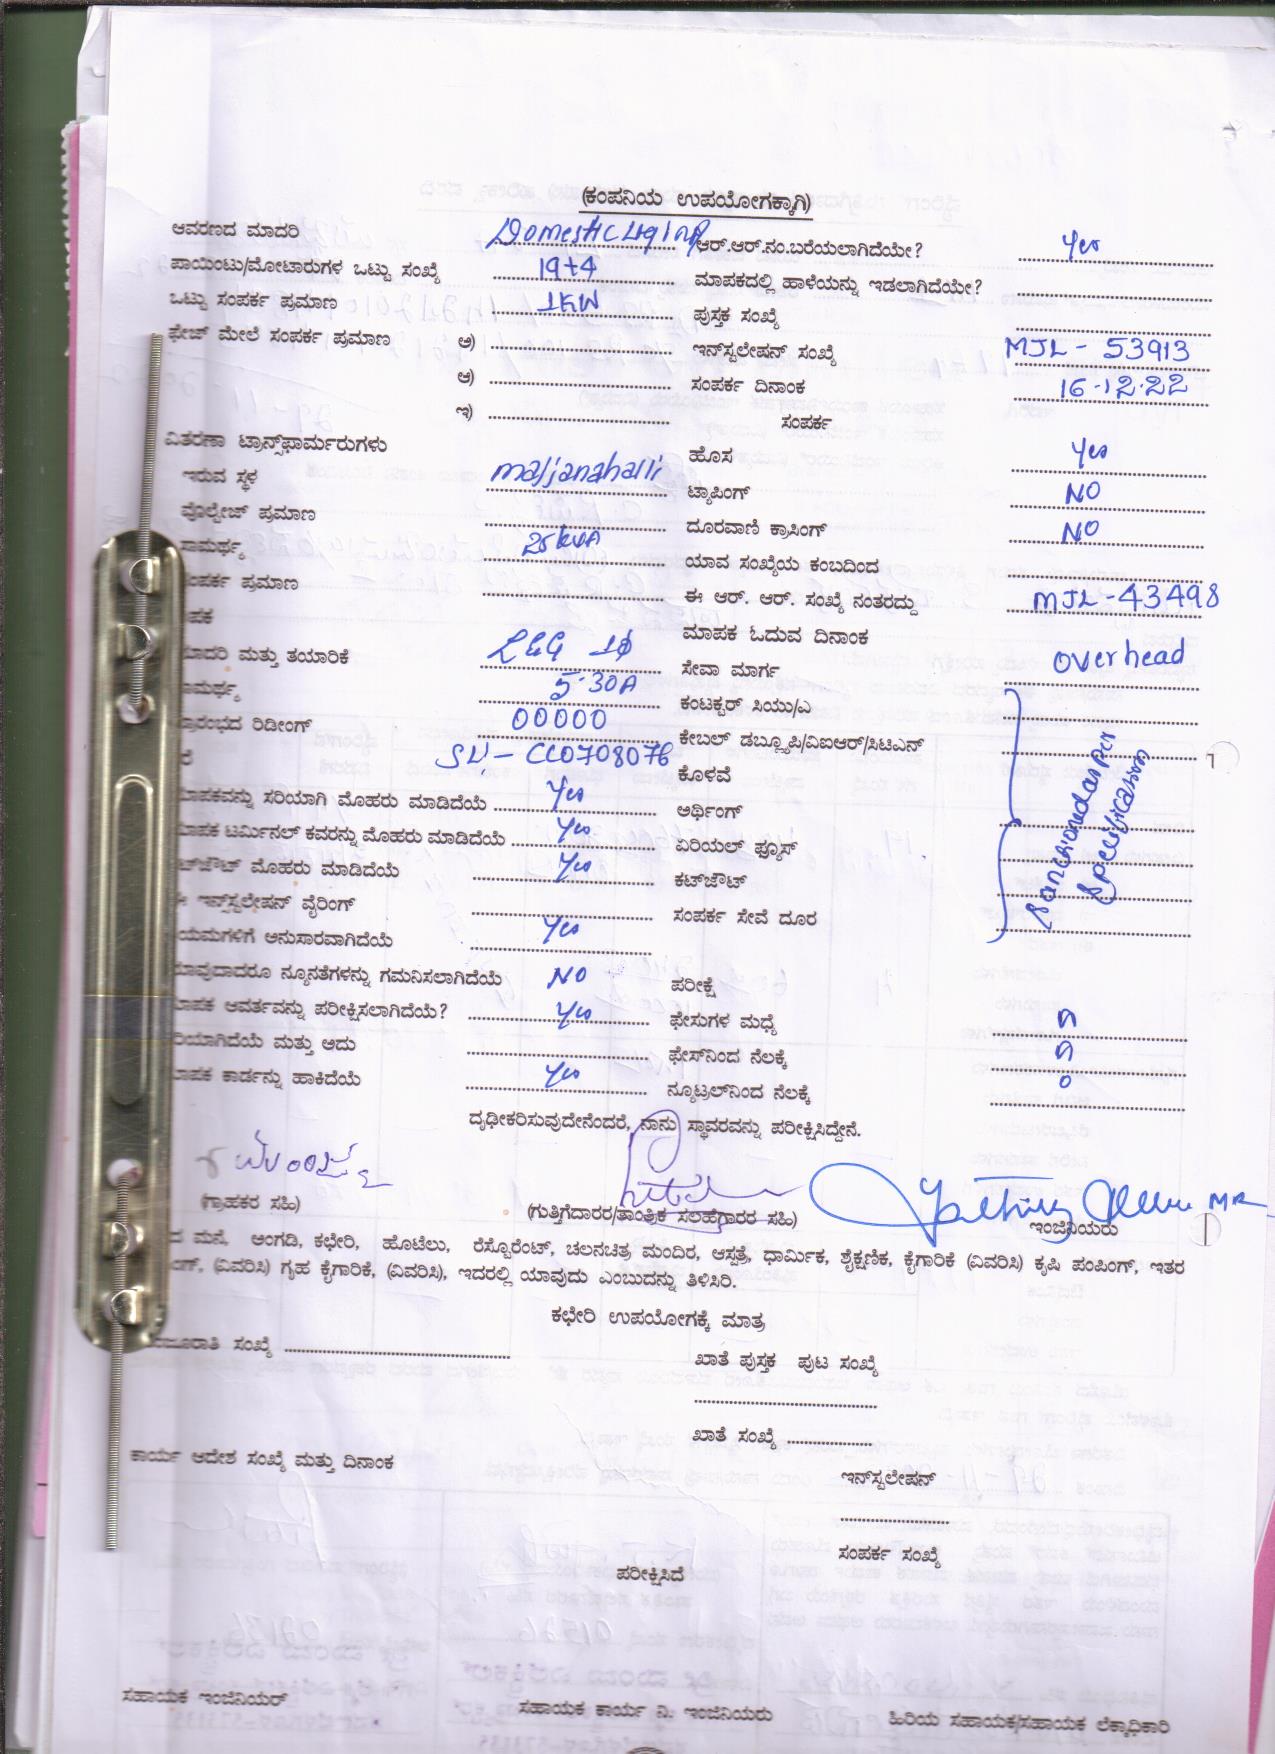 (ಕಂಪನಿಯ ಉಪಯೋಗಕ್ಕಾಗಿ)
ಆವರಣದ ಮಾದರಿ Domestic Lighting ಆರ್.ಆರ್.ನಂ.ಬರೆಯಲಾಗಿದೆಯೇ? Yes
ಪಾಯಿಂಟು/ಮೋಟಾರುಗಳ ಒಟ್ಟು ಸಂಖ್ಯೆ 19+4 ಮಾಪಕದಲ್ಲಿ ಹಾಳೆಯನ್ನು ಇಡಲಾಗಿದೆಯೇ?
ಒಟ್ಟು ಸಂಪರ್ಕ ಪ್ರಮಾಣ 1KW ಪುಸ್ತಕ ಸಂಖ್ಯೆ
ಫೇಜ್ ಮೇಲೆ ಸಂಪರ್ಕ ಪ್ರಮಾಣ ಅ) ಇನ್‌ಸ್ಟಲೇಷನ್ ಸಂಖ್ಯೆ MJL - 53913
ಆ) ಸಂಪರ್ಕ ದಿನಾಂಕ 16.12.22
ಇ) ಸಂಪರ್ಕ
ವಿತರಣಾ ಟ್ರಾನ್ಸ್‌ಫಾರ್ಮರುಗಳು ಹೊಸ Yes
ಇರುವ ಸ್ಥಳ majjanahalli ಟ್ಯಾಪಿಂಗ್ NO
ವೊಲ್ಟೇಜ್ ಪ್ರಮಾಣ ದೂರವಾಣಿ ಕ್ರಾಸಿಂಗ್ NO
ಸಾಮರ್ಥ್ಯ 25kVA ಯಾವ ಸಂಖ್ಯೆಯ ಕಂಬದಿಂದ
ಸಂಪರ್ಕ ಪ್ರಮಾಣ ಈ ಆರ್. ಆರ್. ಸಂಖ್ಯೆ ನಂತರದ್ದು MJL - 43498
ಪಕ ಮಾಪಕ ಓದುವ ದಿನಾಂಕ
ಮಾದರಿ ಮತ್ತು ತಯಾರಿಕೆ L&G 1φ ಸೇವಾ ಮಾರ್ಗ overhead
ಸಾಮರ್ಥ್ಯ 5-30A ಕಂಟಕ್ಟರ್ ಸಿಯು/ಎ
ಪ್ರಾರಂಭದ ರಿಡೀಂಗ್ 00000 ಕೇಬಲ್ ಡಬ್ಲ್ಯೂಪಿ/ವಿಐಆರ್/ಸಿಟಿಎನ್
ರೆ Sl - CC0708076 ಕೊಳವೆ
ಮಾಪಕವನ್ನು ಸರಿಯಾಗಿ ಮೊಹರು ಮಾಡಿದೆಯೆ Yes ಅರ್ಥಿಂಗ್
ಮಾಪಕ ಟರ್ಮಿನಲ್ ಕವರನ್ನು ಮೊಹರು ಮಾಡಿದೆಯೆ Yes ಏರಿಯಲ್ ಫ್ಯೂಸ್
ಕಟ್‌ಔಟ್ ಮೊಹರು ಮಾಡಿದೆಯೆ Yes ಕಟ್‌ಔಟ್
ಈ ಇನ್‌ಸ್ಟಲೇಷನ್ ವೈರಿಂಗ್ ಸಂಪರ್ಕ ಸೇವೆ ದೂರ
Sanctioned as per
Specification
ಯಮಗಳಿಗೆ ಅನುಸಾರವಾಗಿದೆಯೆ Yes
ಯಾವುದಾದರೂ ನ್ಯೂನತೆಗಳನ್ನು ಗಮನಿಸಲಾಗಿದೆಯೆ NO ಪರೀಕ್ಷೆ
ಮಾಪಕ ಆವರ್ತವನ್ನು ಪರೀಕ್ಷಿಸಲಾಗಿದೆಯೆ? Yes ಫೇಸುಗಳ ಮಧ್ಯೆ
ರಿಯಾಗಿದೆಯೆ ಮತ್ತು ಅದು ಫೇಸ್‌ನಿಂದ ನೆಲಕ್ಕೆ
ಮಾಪಕ ಕಾರ್ಡನ್ನು ಹಾಕಿದೆಯೆ Yes ನ್ಯೂಟ್ರಲ್‌ನಿಂದ ನೆಲಕ್ಕೆ 0
ದೃಢೀಕರಿಸುವುದೇನೆಂದರೆ, ನಾನು ಸ್ಥಾವರವನ್ನು ಪರೀಕ್ಷಿಸಿದ್ದೇನೆ.
(ಗ್ರಾಹಕರ ಸಹಿ) (ಗುತ್ತಿಗೆದಾರರ/ತಾಂತ್ರಿಕ ಸಲಹೆಗಾರರ ಸಹಿ) ಇಂಜಿನಿಯರು MR
ದ ಮನೆ, ಅಂಗಡಿ, ಕಛೇರಿ, ಹೊಟೆಲು, ರೆಸ್ಟೊರೆಂಟ್, ಚಲನಚಿತ್ರ ಮಂದಿರ, ಆಸ್ಪತ್ರೆ, ಧಾರ್ಮಿಕ, ಶೈಕ್ಷಣಿಕ, ಕೈಗಾರಿಕೆ (ವಿವರಿಸಿ) ಕೃಷಿ ಪಂಪಿಂಗ್, ಇತರ
ಂಗ್, (ವಿವರಿಸಿ) ಗೃಹ ಕೈಗಾರಿಕೆ, (ವಿವರಿಸಿ), ಇದರಲ್ಲಿ ಯಾವುದು ಎಂಬುದನ್ನು ತಿಳಿಸಿರಿ.
ಕಛೇರಿ ಉಪಯೋಗಕ್ಕೆ ಮಾತ್ರ
ಂಜೂರಾತಿ ಸಂಖ್ಯೆ ಖಾತೆ ಪುಸ್ತಕ ಪುಟ ಸಂಖ್ಯೆ
ಖಾತೆ ಸಂಖ್ಯೆ
ಕಾರ್ಯ ಆದೇಶ ಸಂಖ್ಯೆ ಮತ್ತು ದಿನಾಂಕ ಇನ್‌ಸ್ಟಲೇಷನ್
ಸಂಪರ್ಕ ಸಂಖ್ಯೆ
ಪರೀಕ್ಷಿಸಿದೆ
ಸಹಾಯಕ ಇಂಜಿನಿಯರ್ ಸಹಾಯಕ ಕಾರ್ಯ ನಿ. ಇಂಜಿನಿಯರು ಹಿರಿಯ ಸಹಾಯಕ/ಸಹಾಯಕ ಲೆಕ್ಕಾಧಿಕಾರಿ